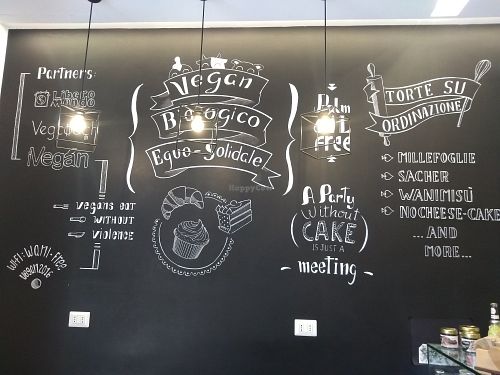 Partners:
Libero
mondo
Vegán
vegans eat
without
violence
Wi-Fi: WAMI-Free
vegan2016
Vegan
Biologico
Equo-Solidale
HappyCow
Palm
Oil
FREE
A Party
Without
CAKE
IS JUST A
- meeting -
TORTE SU
ORDINAZIONE
MILLEFOGLIE
SACHER
WANIMISÙ
NOCHEESE-CAKE
...AND
MORE...